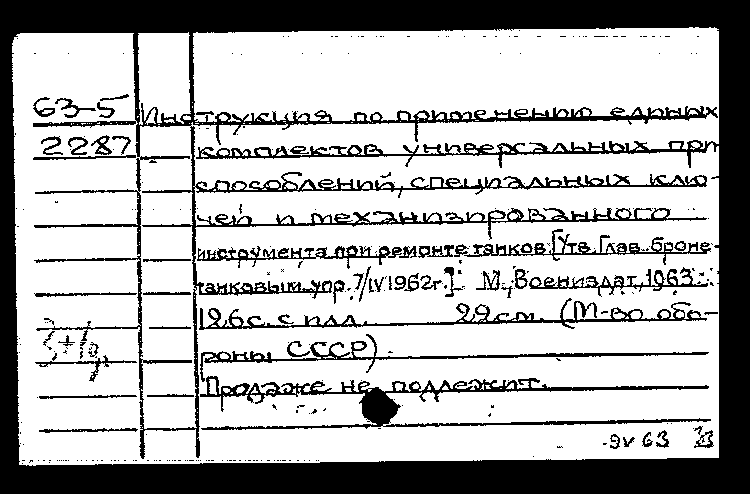 63-5 Инструкция по применению единых
2287 комплектов универсальных при
способлений, специальных клю-
чей и механизированного
инструмента при ремонте танков. [Утв. Глав. броне-
танковым упр. 7/IV 1962 г.]. М., Воениздат, 1963.
126 с. с илл. 22 см. (М-во обо-
роны СССР).
Продаже не подлежит.
9V 63